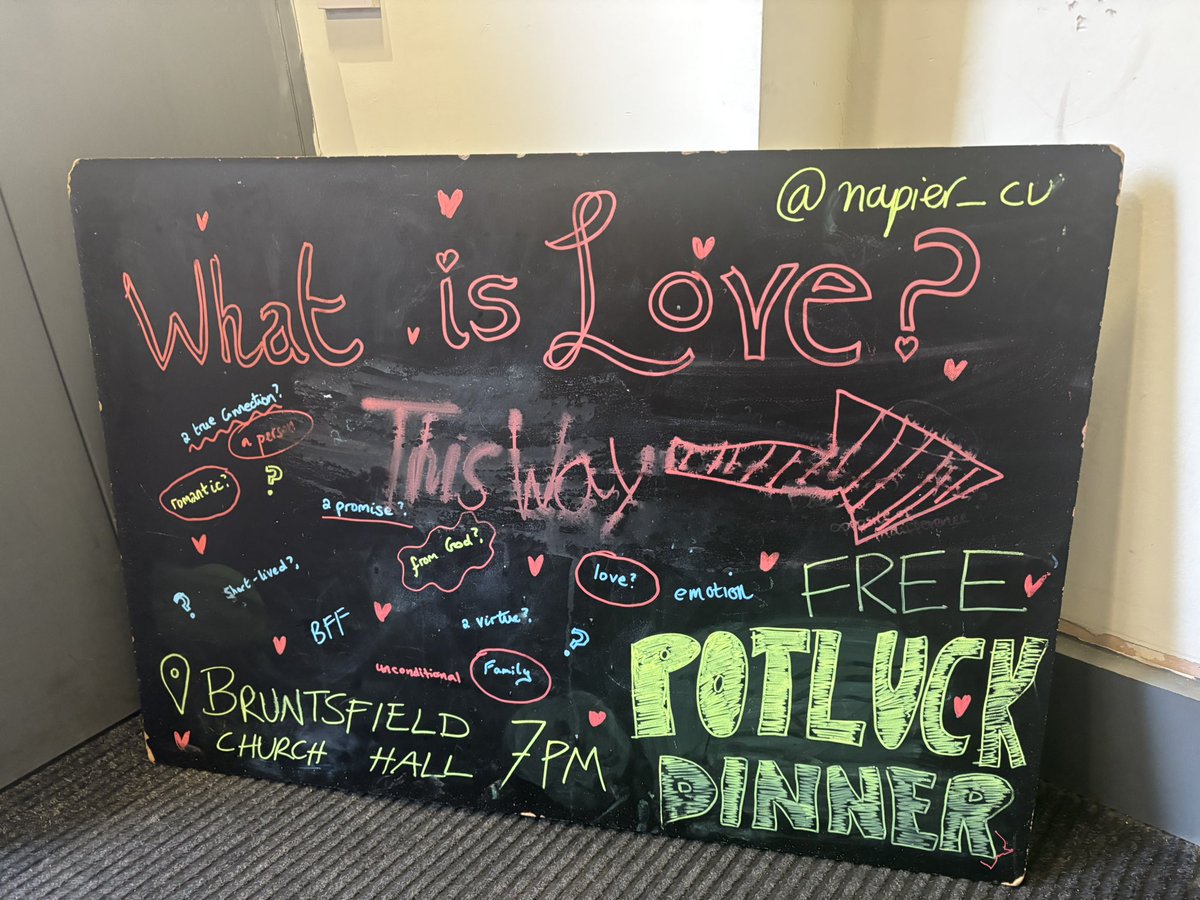 @napier_cu
What is Love?
a true connection?
a person
This Way
romantic?
?
a promise?
from God?
short-lived?
love?
emotion
?
BFF
a virtue?
?
unconditional
Family
FREE
POTLUCK
DINNER
BRUNTSFIELD
CHURCH HALL
7PM